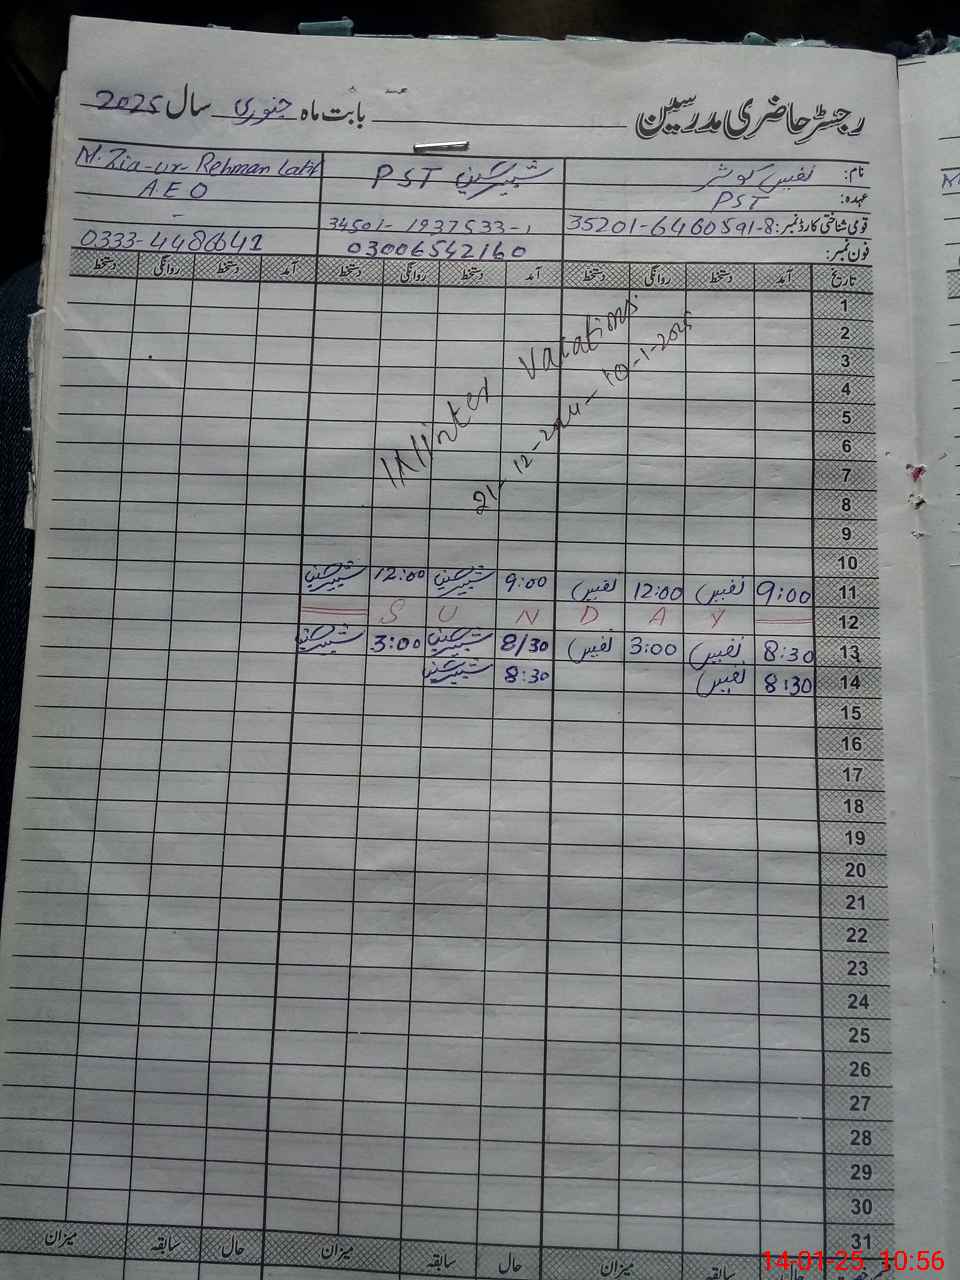 رجسٹر حاضری مدرسین بابت ماہ جنوری سال 2025
نام: نفیس کوثر شبیر حسین PST M. Zia-ur-Rehman Latif
عہدہ: PST AEO
قومی شناختی کارڈ نمبر: 35201-6460591-8 34501-1937533-1 -
فون نمبر: 03006542160
تاریخ آمد دستخط روانگی دستخط آمد دستخط روانگی دستخط آمد دستخط روانگی دستخط
1
2
3
4
5
6
7
8
9
10
Winter Vacations
21-12-2024 - 10-1-2025
11 9:00 نفیس 12:00 نفیس 9:00 شبیر حسین 12:00 شبیر حسین
12 S U N D A Y
13 8:30 نفیس 3:00 نفیس 8/30 شبیر حسین 3:00 شبیر حسین
14 8:30 نفیس 8:30 شبیر حسین
15
16
17
18
19
20
21
22
23
24
25
26
27
28
29
30
31
سابقہ میزان حال سابقہ میزان حال سابقہ میزان
14-01-25 10:56